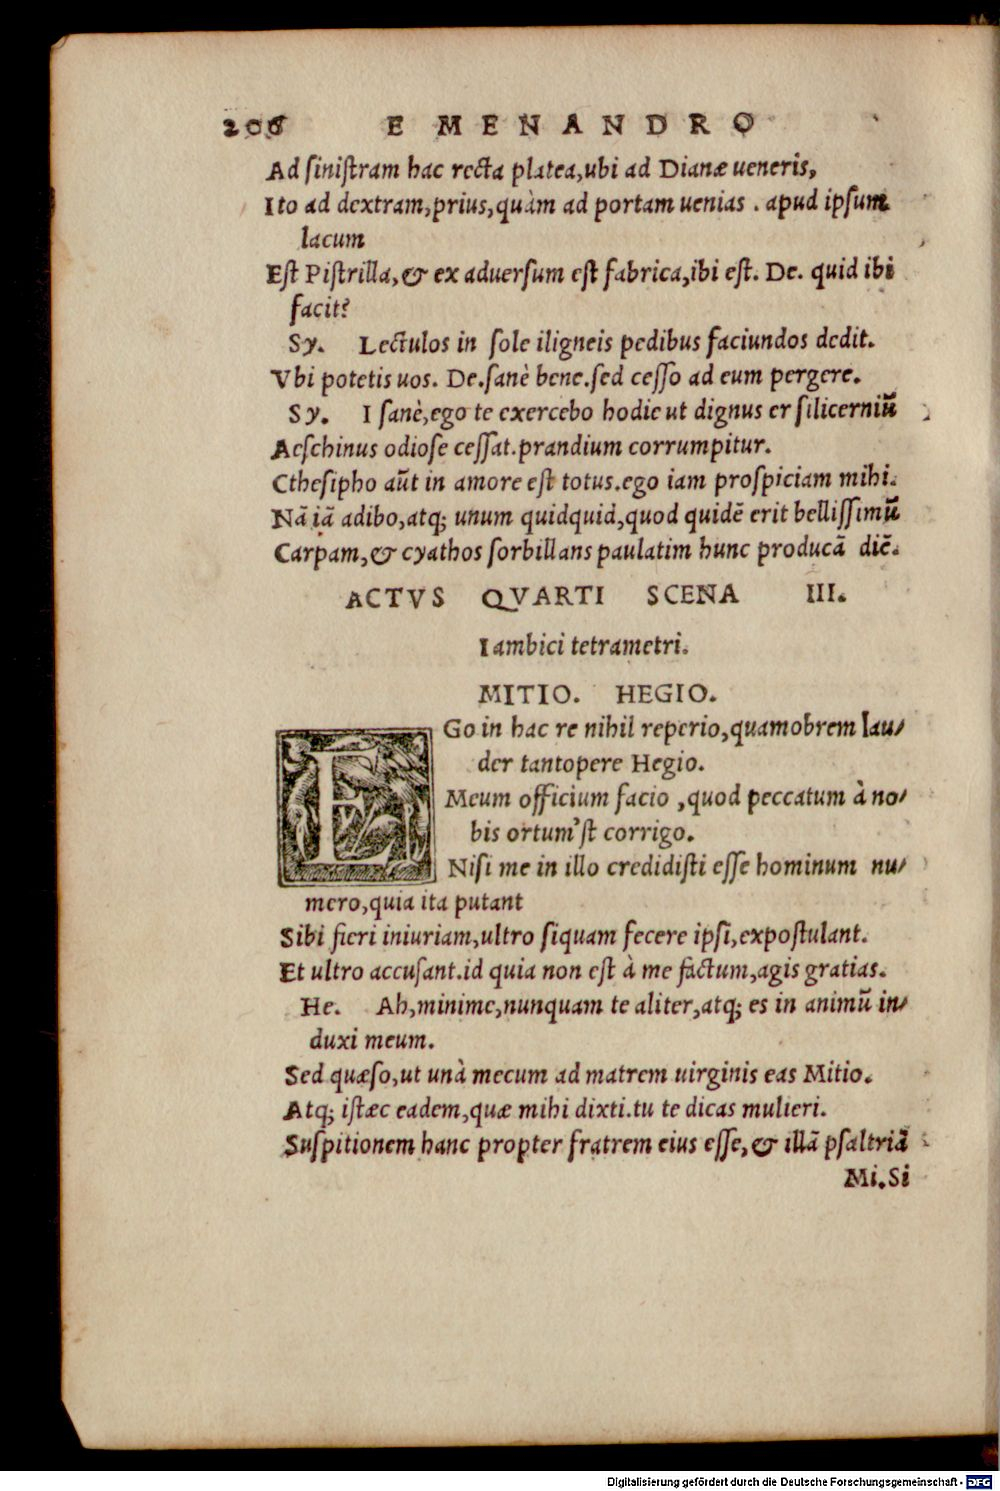 206 E MENANDRO
Ad sinistram hac recta platea,ubi ad Dianæ ueneris,
Ito ad dextram,prius,quàm ad portam uenias . apud ipsum
lacum
Est Pistrilla,& ex aduersum est fabrica,ibi est. De. quid ibi
facit?
Sy. Lectulos in sole iligneis pedibus faciundos dedit.
Vbi potetis uos. De.sanè bene.sed cesso ad eum pergere.
Sy. I sanè,ego te exercebo hodie ut dignus er silicerniũ
Aeschinus odiose cessat.prandium corrumpitur.
Cthesipho aũt in amore est totus.ego iam prospiciam mihi.
Nã iã adibo,atq; unum quidquid,quod quidẽ erit bellissimũ
Carpam,& cyathos sorbillans paulatim hunc producã diẽ.
ACTVS QVARTI SCENA III.
Iambici tetrametri.
MITIO. HEGIO.
EGo in hac re nihil reperio,quamobrem lau/
der tantopere Hegio.
Meum officium facio ,quod peccatum à no/
bis ortum'st corrigo.
Nisi me in illo credidisti esse hominum nu/
mero,quia ita putant
Sibi fieri iniuriam,ultro siquam fecere ipsi,expostulant.
Et ultro accusant.id quia non est à me factum,agis gratias.
He. Ah,minime,nunquam te aliter,atq; es in animũ in/
duxi meum.
Sed quæso,ut unà mecum ad matrem uirginis eas Mitio.
Atq; istæc eadem,quæ mihi dixti.tu te dicas mulieri.
Suspitionem hanc propter fratrem eius esse,& illã psaltriã
Mi.Si
Digitalisierung gefördert durch die Deutsche Forschungsgemeinschaft - DFG